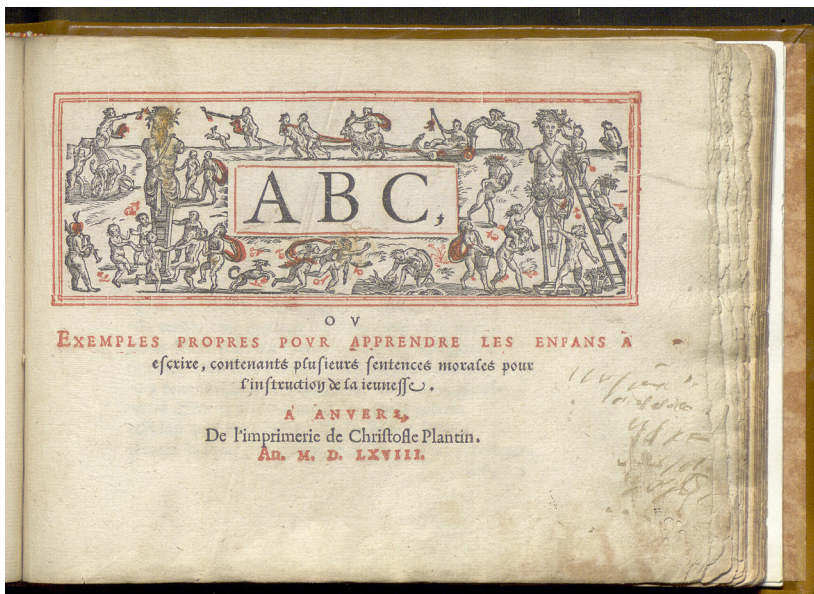 ABC,
OV
EXEMPLES PROPRES POVR APPRENDRE LES ENFANS A
eſcrire, contenants pluſieurs ſentences morales pour
l'inſtruction de la ieuneſſe.
A ANVERS,
De l'imprimerie de Chriſtofle Plantin.
An. M. D. LXVIII.